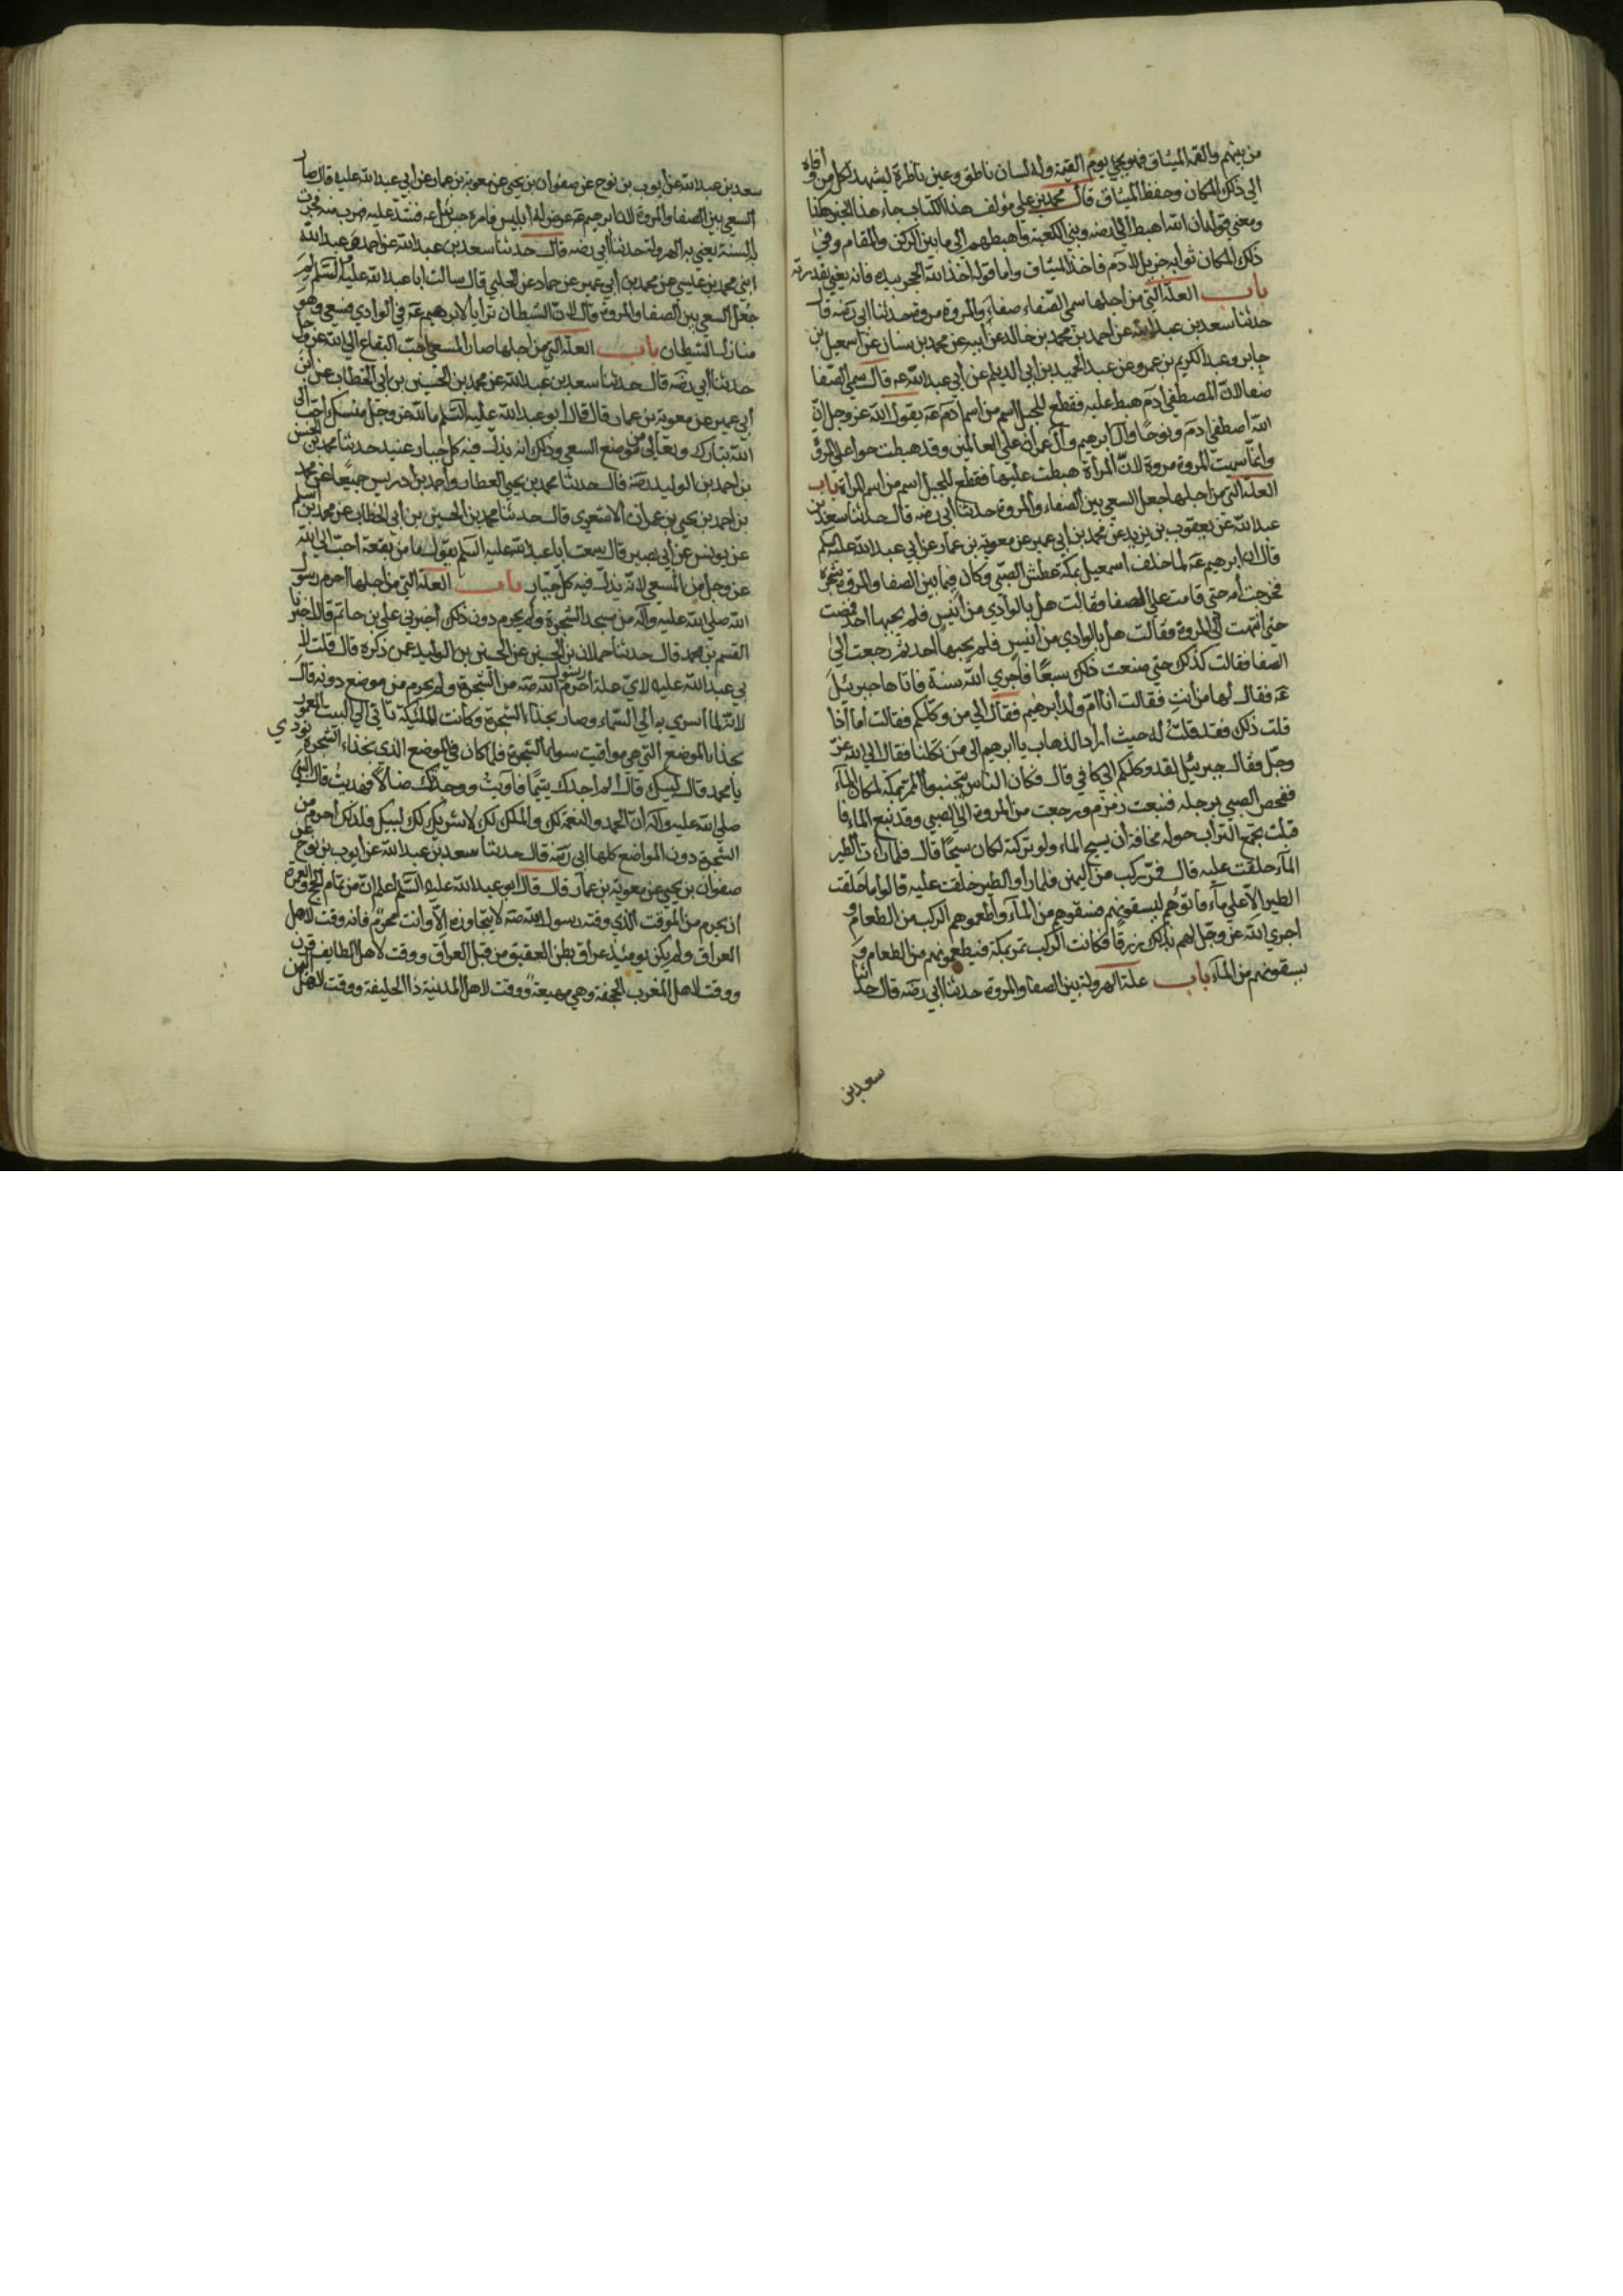 من بينهم والقمه الميثاق فهو يجيئ يوم القيمة وله لسان ناطق وعين ناظرة ليشهد لكل من وافاه
الي ذلك المكان وحفظ الميثاق قال محمد بن علي مؤلف هذا الكتاب جاء هذا الخبر هكذا
ومعني قوله ان الله اهبط الي ارضه وبني الكعبة فاهبطهم الي ما بين الركن والمقام وفي
ذلك المكان ثوابه جزيل لادم فاخذ الميثاق واما قوله اخذ الله الحجر بيده فانه يعني بقدرته
باب العلة التي من اجلها سمي الصفاء صفاء والمروة مروة حدثنا ابي رضه قال
حدثنا سعد بن عبد الله عن احمد بن محمد بن خالد عن ابيه عن محمد بن سنان عن اسمعيل بن
جابر وعبد الكريم بن عمرو عن عبد الحميد بن ابي الديلم عن ابي عبد الله عه قال سمي الصفا
صفا لان المصطفي ادم هبط عليه فقطع للجبل اسم من اسم ادم عه يقول الله عز وجل ان
الله اصطفي ادم ونوحا وال ابرهيم وال عمران علي العالمين وقد هبطت حوا علي المروة
وانما سميت المروة مروة لان المرأة هبطت عليها فقطع للجبل اسم من اسم المراة باب
العلة التي من اجلها جعل السعي بين الصفاء والمروة حدثنا ابي رضه قال حدثنا سعد بن
عبد الله عن يعقوب بن يزيد عن محمد بن ابي عمير عن معوية بن عمار عن ابي عبد الله عليه السلم
قال ان ابرهيم عه لما خلف اسمعيل بمكة عطش الصبي وكان فيما بين الصفا والمروة شجرة
فخرجت أمه حتي قامت علي الصفا فقالت هل بالوادي من انيس فلم يجبها احد فمضت
حتي انتهت الي المروة فقالت هل بالوادي من انيس فلم يجبها احد ثم رجعت الي
الصفا فقالت كذلك حتي صنعت ذلك سبعا فاجري الله سنة فاتاها جبرئيل
عه فقال لها من انت فقالت انا ام ولد ابرهيم فقال الي من وكلكم فقالت اما اذا
قلت ذلك فقد قلت له حيث اراد الذهاب يا ابرهيم الي من تكلنا فقال الي الله عز
وجل فقال جبرئيل لقد وكلكم الي كافي قال فكان الناس يتجنبوا الممر بمكة لمكان الماء
ففحص الصبي برجله فنبعت زمزم ورجعت من المروة الي الصبي وقد نبع الماء فا
قبلت تجمع التراب حوله مخافة ان يسيح الماء ولو تركته لكان سيحا قال فلما رات الطير
الماء حلقت عليه قال فمر ركب من اليمن فلما راوا الطير حلقت عليه قالوا ما حلقت
الطير الا علي ماء فاتوهم ليسقونهم فسقوهم من الماء واطعموهم الركب من الطعام و
اجري الله عز وجل لهم بذلك رزقا فكانت الركب تمر بمكة فيطعمونهم من الطعام و
يسقونهم من الماء باب علة الهرولة بين الصفا والمروة حدثنا ابي رضه قال حدثنا
سعد بن
سعد بن عبد الله عن ايوب بن نوح عن صفوان بن يحيي عن معوية بن عمار عن ابي عبد الله عليه قال صار
السعي بين الصفا والمروة لان ابرهيم عه عرض له ابليس فامره جبرئيل عه فشد عليه فهرب منه فجرت
به السنة يعني به الهرولة حدثنا ابي رضه قال حدثنا سعد بن عبد الله عن احمد وعبد الله
ابني محمد بن عيسي عن محمد بن ابي عمير عن حماد عن الحلبي قال سالت ابا عبد الله عليه السلم لم
جعل السعي بين الصفا والمروة قال لان الشيطان تراءا لابرهيم عه في الوادي فسعي وهو
منازل الشيطان باب العلة التي من اجلها صار المسعي احب البقاع الي الله عز وجل
حدثنا ابي رضه قال حدثنا سعد بن عبد الله عن محمد بن الحسين بن ابي الخطاب عن ابن
أبي عمير عن معوية بن عمار قال قال ابو عبد الله عليه السلم ما لله عز وجل منسك احب الي
الله تبارك وتعالي من موضع السعي وذلك انه يذل فيه كل جبار عنيد حدثنا محمد بن الحسن
بن احمد بن الوليد رضه قال حدثنا محمد بن يحيي العطار واحمد بن ادريس جميعا عن محمد
بن احمد بن يحيي بن عمران الاشعري قال حدثنا محمد بن الحسين بن أبي الخطاب عن محمد بن اسلم
عن يونس عن ابي بصير قال سمعت أبا عبد الله عليه السلم يقول ما من بقعة احب الي الله
عز وجل من المسعي لانه يذل فيه كل جبار باب العلة التي من اجلها احرم رسول
الله صلي الله عليه وآله من مسجد الشجرة ولم يحرم دون ذلك أخبرني علي بن حاتم قال اخبرنا
القسم بن محمد قال حدثنا حملان بن الحسين عن الحسين بن الوليد عمن ذكره قال قلت لا
بي عبد الله عليه لاي علة أحرم رسول الله صه من الشجرة ولم يحرم من موضع دونه قال
لانه لما اسري به الي السماء وصار بحذاء الشجرة وكانت الملئكة تاتي الي البيت المعمور
بحذاء الموضع التي هي مواقيت سوا الشجرة فلما كان في الموضع الذي بحذاء الشجرة نودي
يا محمد قال لبيك قال الم اجدك يتيما فآويت ووجدتك ضالا فهديت قال النبي
صلي الله عليه وآله ان الحمد والنعمة لك والملك لك لا شريك لك لبيك فلذلك احرم من
الشجرة دون المواضع كلها ابي رضه قال حدثنا سعد بن عبد الله عن ايوب بن نوح عن
صفوان بن يحيي عن معوية بن عمار قال قال ابو عبد الله عليه السلم اعلم ان من تمام الحج والعمرة
ان يحرم من الموقت الذي وقته رسول الله صه لا يتجاوزه الا وانت محرم فانه وقت لاهل
العراق ولم يكن يومئذ عراق بطن العقيق من قبل العراق ووقت لاهل الطايف قرن
ووقت لاهل المغرب الجحفة وهي مهيعة ووقت لاهل المدينة ذا الحليفة ووقت لاهل اليمن